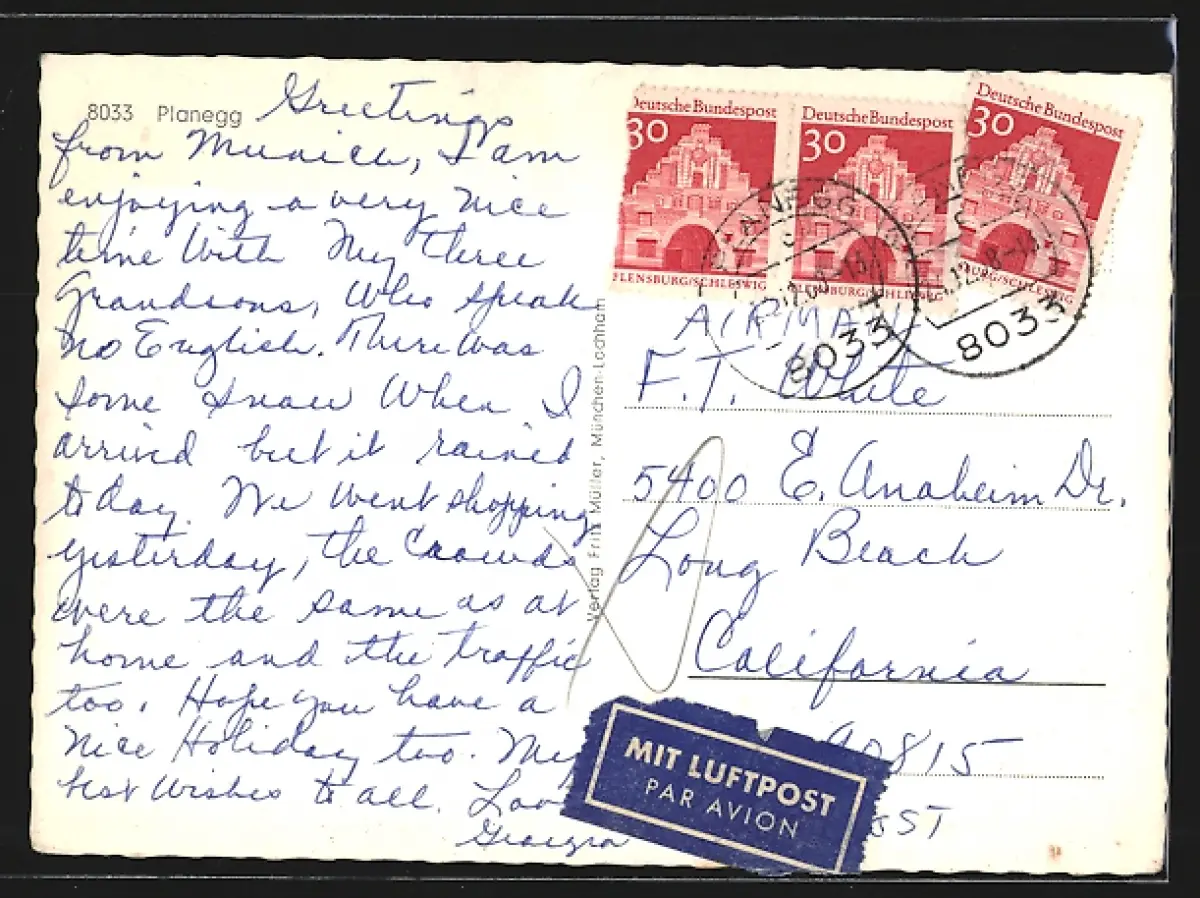 8033 Planegg
Greetings
from Munich, I am
enjoying a very nice
time With My three
Grandsons, Who speak
no English. There was
some snow When I
arrived but it rained
today. We went shopping
yesterday, the Crowds
were the same as at
home and the traffic
too. Hope you have a
Nice Holiday too. My
best Wishes to all. Love
Verlag Fritz Müller, München-Lochham
Deutsche Bundespost
30
FLENSBURG/SCHLESWIG
Deutsche Bundespost
30
FLENSBURG/SCHLESWIG
Deutsche Bundespost
30
FLENSBURG/SCHLESWIG
PLANEGG
8033
8033
AIRMAIL
F.T. White
5400 E. Anaheim Dr.
Long Beach
California
90815
MIT LUFTPOST
PAR AVION